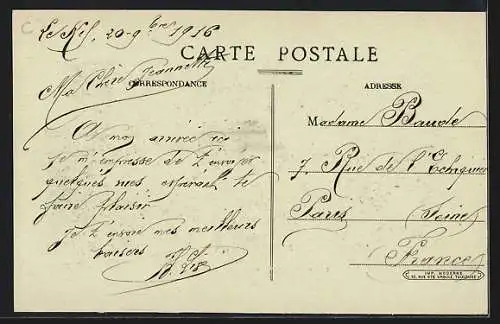 Le Kef, 20-9bre 1916
CARTE POSTALE
Ma Chère Jeannette
CORRESPONDANCE
A mon arrivée ici
je m'empresse de t'envoyer
quelques vues espérant te
faire plaisir
Je t'envoie mes meilleurs
baisers
ADRESSE
Madame Baude
7, Rue de l'Echiquier
Paris Seine
France
IMP. MODERNE